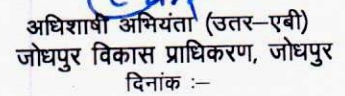 अधिशाषी अभियंता (उतर–एबी)
जोधपुर विकास प्राधिकरण, जोधपुर
दिनांक :–